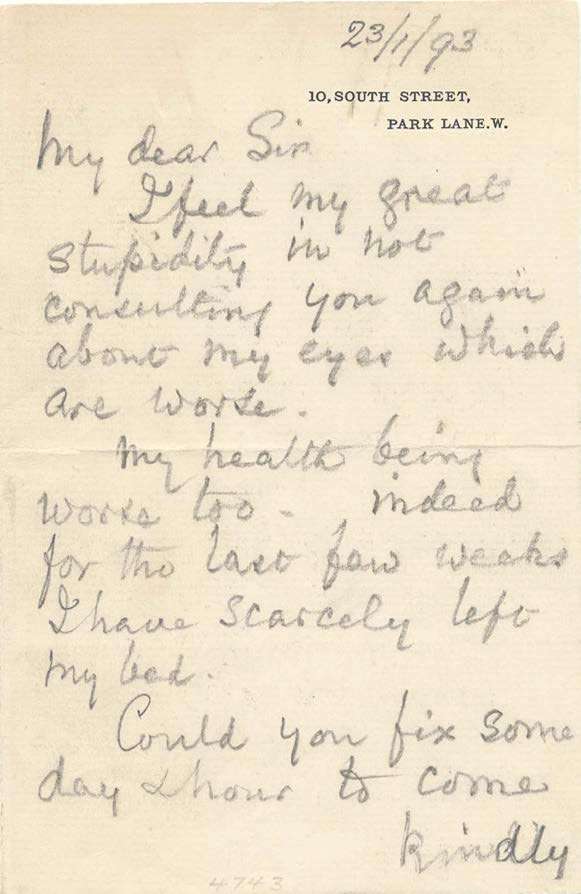 23/1/93
10, SOUTH STREET,
PARK LANE. W.
My dear Sir
I feel my great
stupidity in not
consulting you again
about my eyes which
are worse.
My health being
worse too - indeed
for the last few weeks
I have scarcely left
my bed.
Could you fix some
day & hour to come
kindly
4743